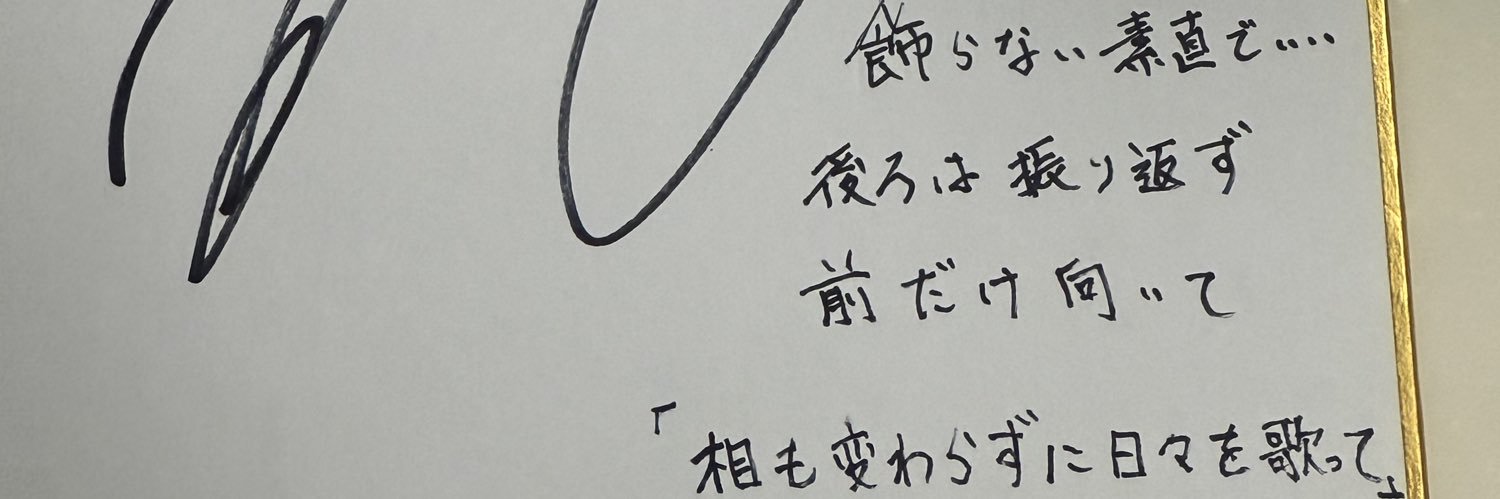 飾らない素直で‥‥
後ろは振り返ず
前だけ向いて
「相も変わらずに日々を歌って」